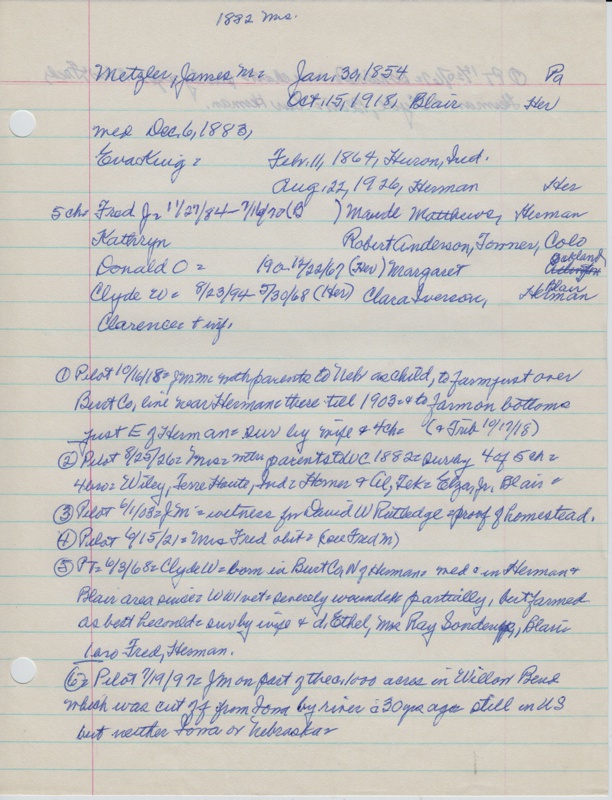 1882 Mrs.
Metzler, James M = Jan. 30, 1854 Pa
Oct. 15, 1918, Blair Her
med Dec. 6, 1883,
Eva King = Feb. 11, 1864, Huron, Ind.
Aug. 22, 1926, Herman Her
5 ch = Fred Jr 11/27/84 - 7/16/70 (B ) Maude Matthews, Herman
Kathryn Robert Anderson, Towner, Colo
Donald O = 190 12/22/67 (Her) Margaret Oakland
Clyde W = 8/23/94 5/30/68 (Her) Clara Iverson, Blair Herman
Clarence = + inf.
① Pilot 10/16/18 = JM = with parents to Nebr as child, to farm just over
Burt Co, line near Herman = there till 1903 = + to farm on bottoms
just E of Herman = sur by wife + 4 ch = (+ Trib 10/17/18)
② Pilot 8/25/26 = Mrs = with parents to WC 1882 = sur by 4 of 5 ch =
4 bro = Wiley, Terre Haute, Ind = Homer + Al, Tek = Elza, Jr. Blair =
③ Pilot 6/1/03 = JM = witness for David W Rutledge = proof of homestead.
④ Pilot 6/15/21 = Mrs Fred obit = (see Fred M)
⑤ PT = 6/3/68 = Clyde W = born in Burt Co, N of Herman = med = in Herman +
Blair area since = WWI vet = severely wounded partially, but farmed
as best he could = sur by wife + d, Ethel, Mrs Ray Blair
1 bro Fred, Herman.
⑥ = Pilot 7/19/97 = JM on part of the 1000 acres in Willow Bend
which was cut off from Iowa by river c 30 yrs ago = still in US
but neither Iowa or Nebraska =